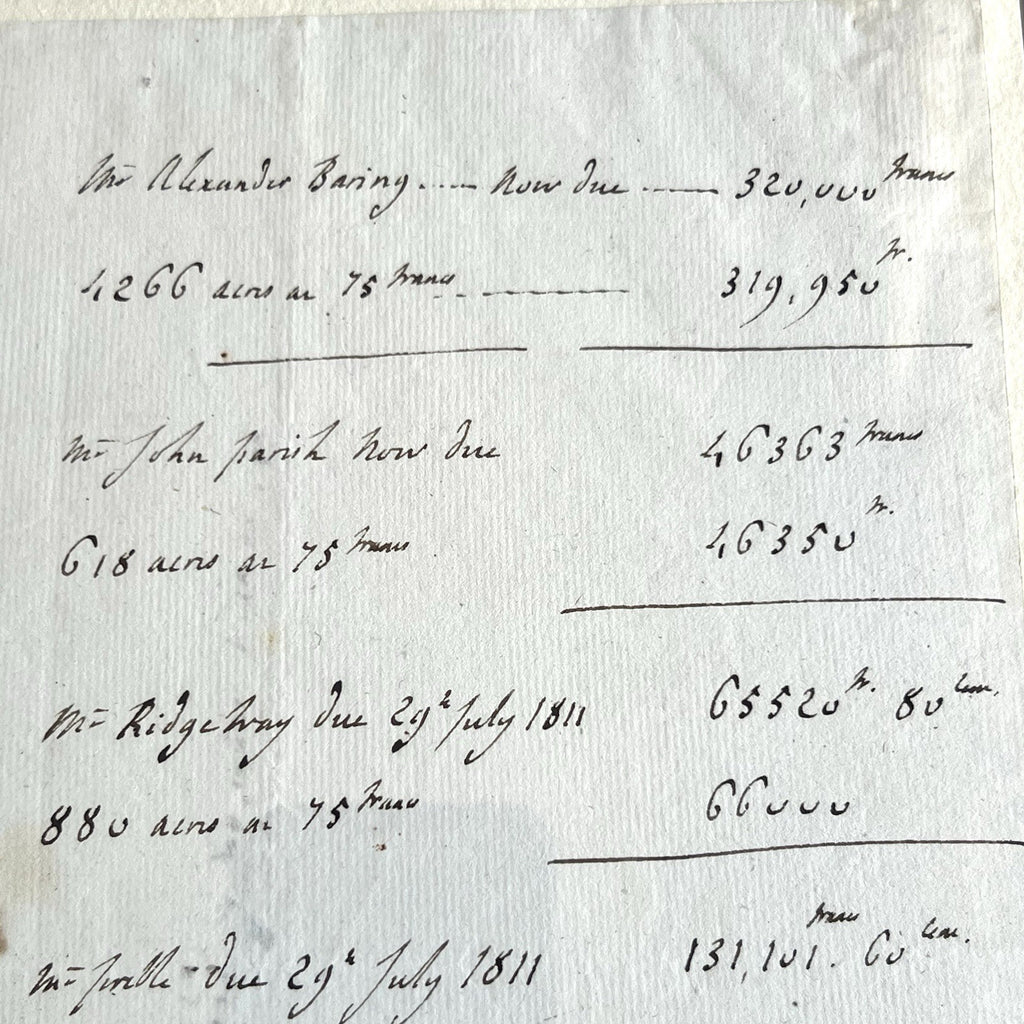 Mr Alexander Baring ..... Now due ...... 320,000 francs
4266 acres at 75 francs ........ 319,950 fr.
Mr John parish Now due 46363 francs
618 acres at 75 francs 46350 fr.
Mr Ridgeway due 29th July 1811 65520 fr. 80 Cen.
880 acres at 75 francs 66000
Mr due 29th July 1811 131,101. francs 60 Cen.